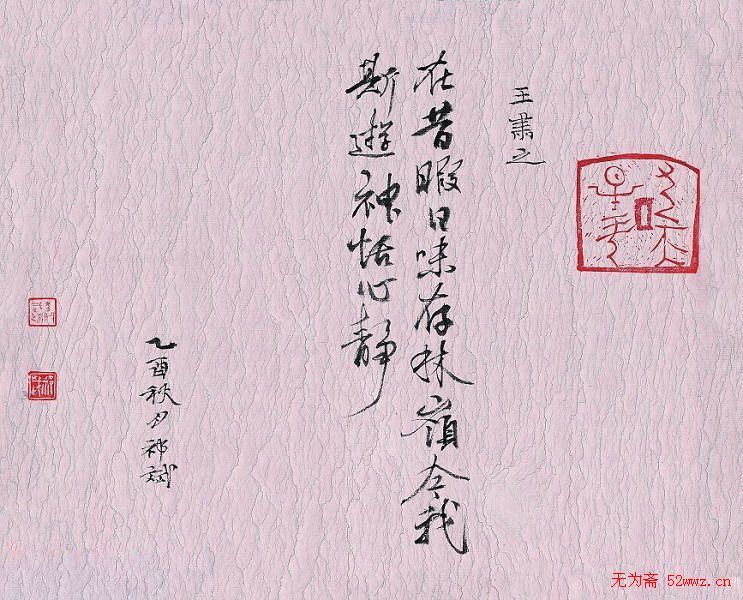 王肅之
在昔暇日味存林嶺今我
斯遊神恬心静
乙酉秋夕祁斌
无为斋 52wwz.cn